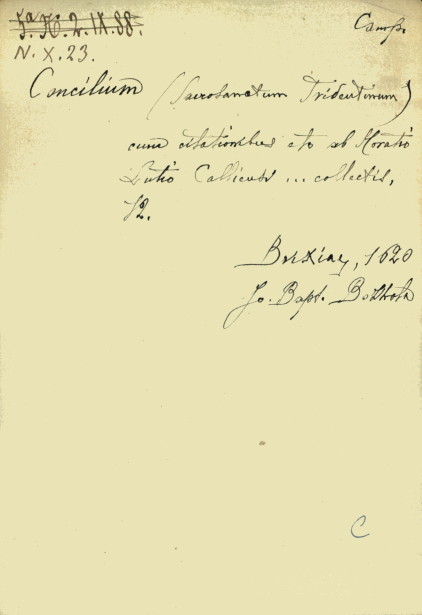 5ª. K. 2. IX. 88.
Camp.
N. X. 23.
Concilium (Sacrosanctum Tridentinum)
cum citationibus etc ab Horatio
Lutio Calliensi ... collectis,
12.
Brixiae, 1620
Jo. Bapt. Bozzola
C